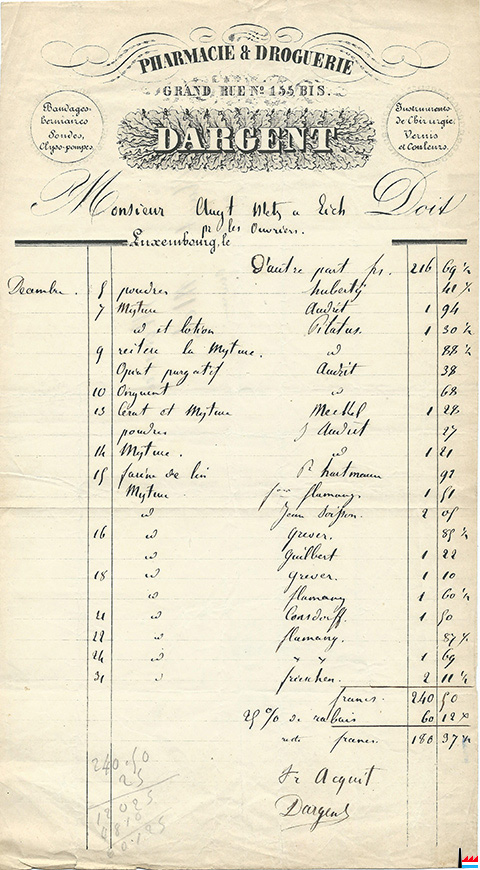 PHARMACIE & DROGUERIE
GRAND RUE Nº 155 BIS.
DARGENT.
Bandages
herniaires
Sondes,
Clyso-pompes
Instruments
de Chirurgie,
Vernis
et Couleurs.
Monsieur Augt Metz a Eich Doit
pr les Ouvriers.
Luxembourg, le
D'autre part frs. 216 69 ½
Decembre. 5 poudres huberty 41 ½
7 Mixture Audrit 1 94
id et lotion Pilatus. 1 30 ½
9 reitere la Mixture. id 88 ½
Opiat purgatif Audrit 38
10 Onguent id 68
13 Cerat et Mixture Meckel 1 28
poudres Audrit 27
14 Mixture. id 1 21
15 farine de lin hartmann 92
Mixture flamang. 1 51
id Jean Soisson. 2 05
16 id Grever. 85 ½
id Guilbert 1 22
18 id Grever. 1 10
id flamang 1 60 ½
21 id Consdorff. 1 50
22 id flamang. 87 ½
24 id " " 1 69
31 id 2 11 ½
francs. 240 50
25 % de rabais 60 12 ½
reste francs. 180 37 ½
240.50
25
12025
4810
60.125
Pr Acquit
Dargent